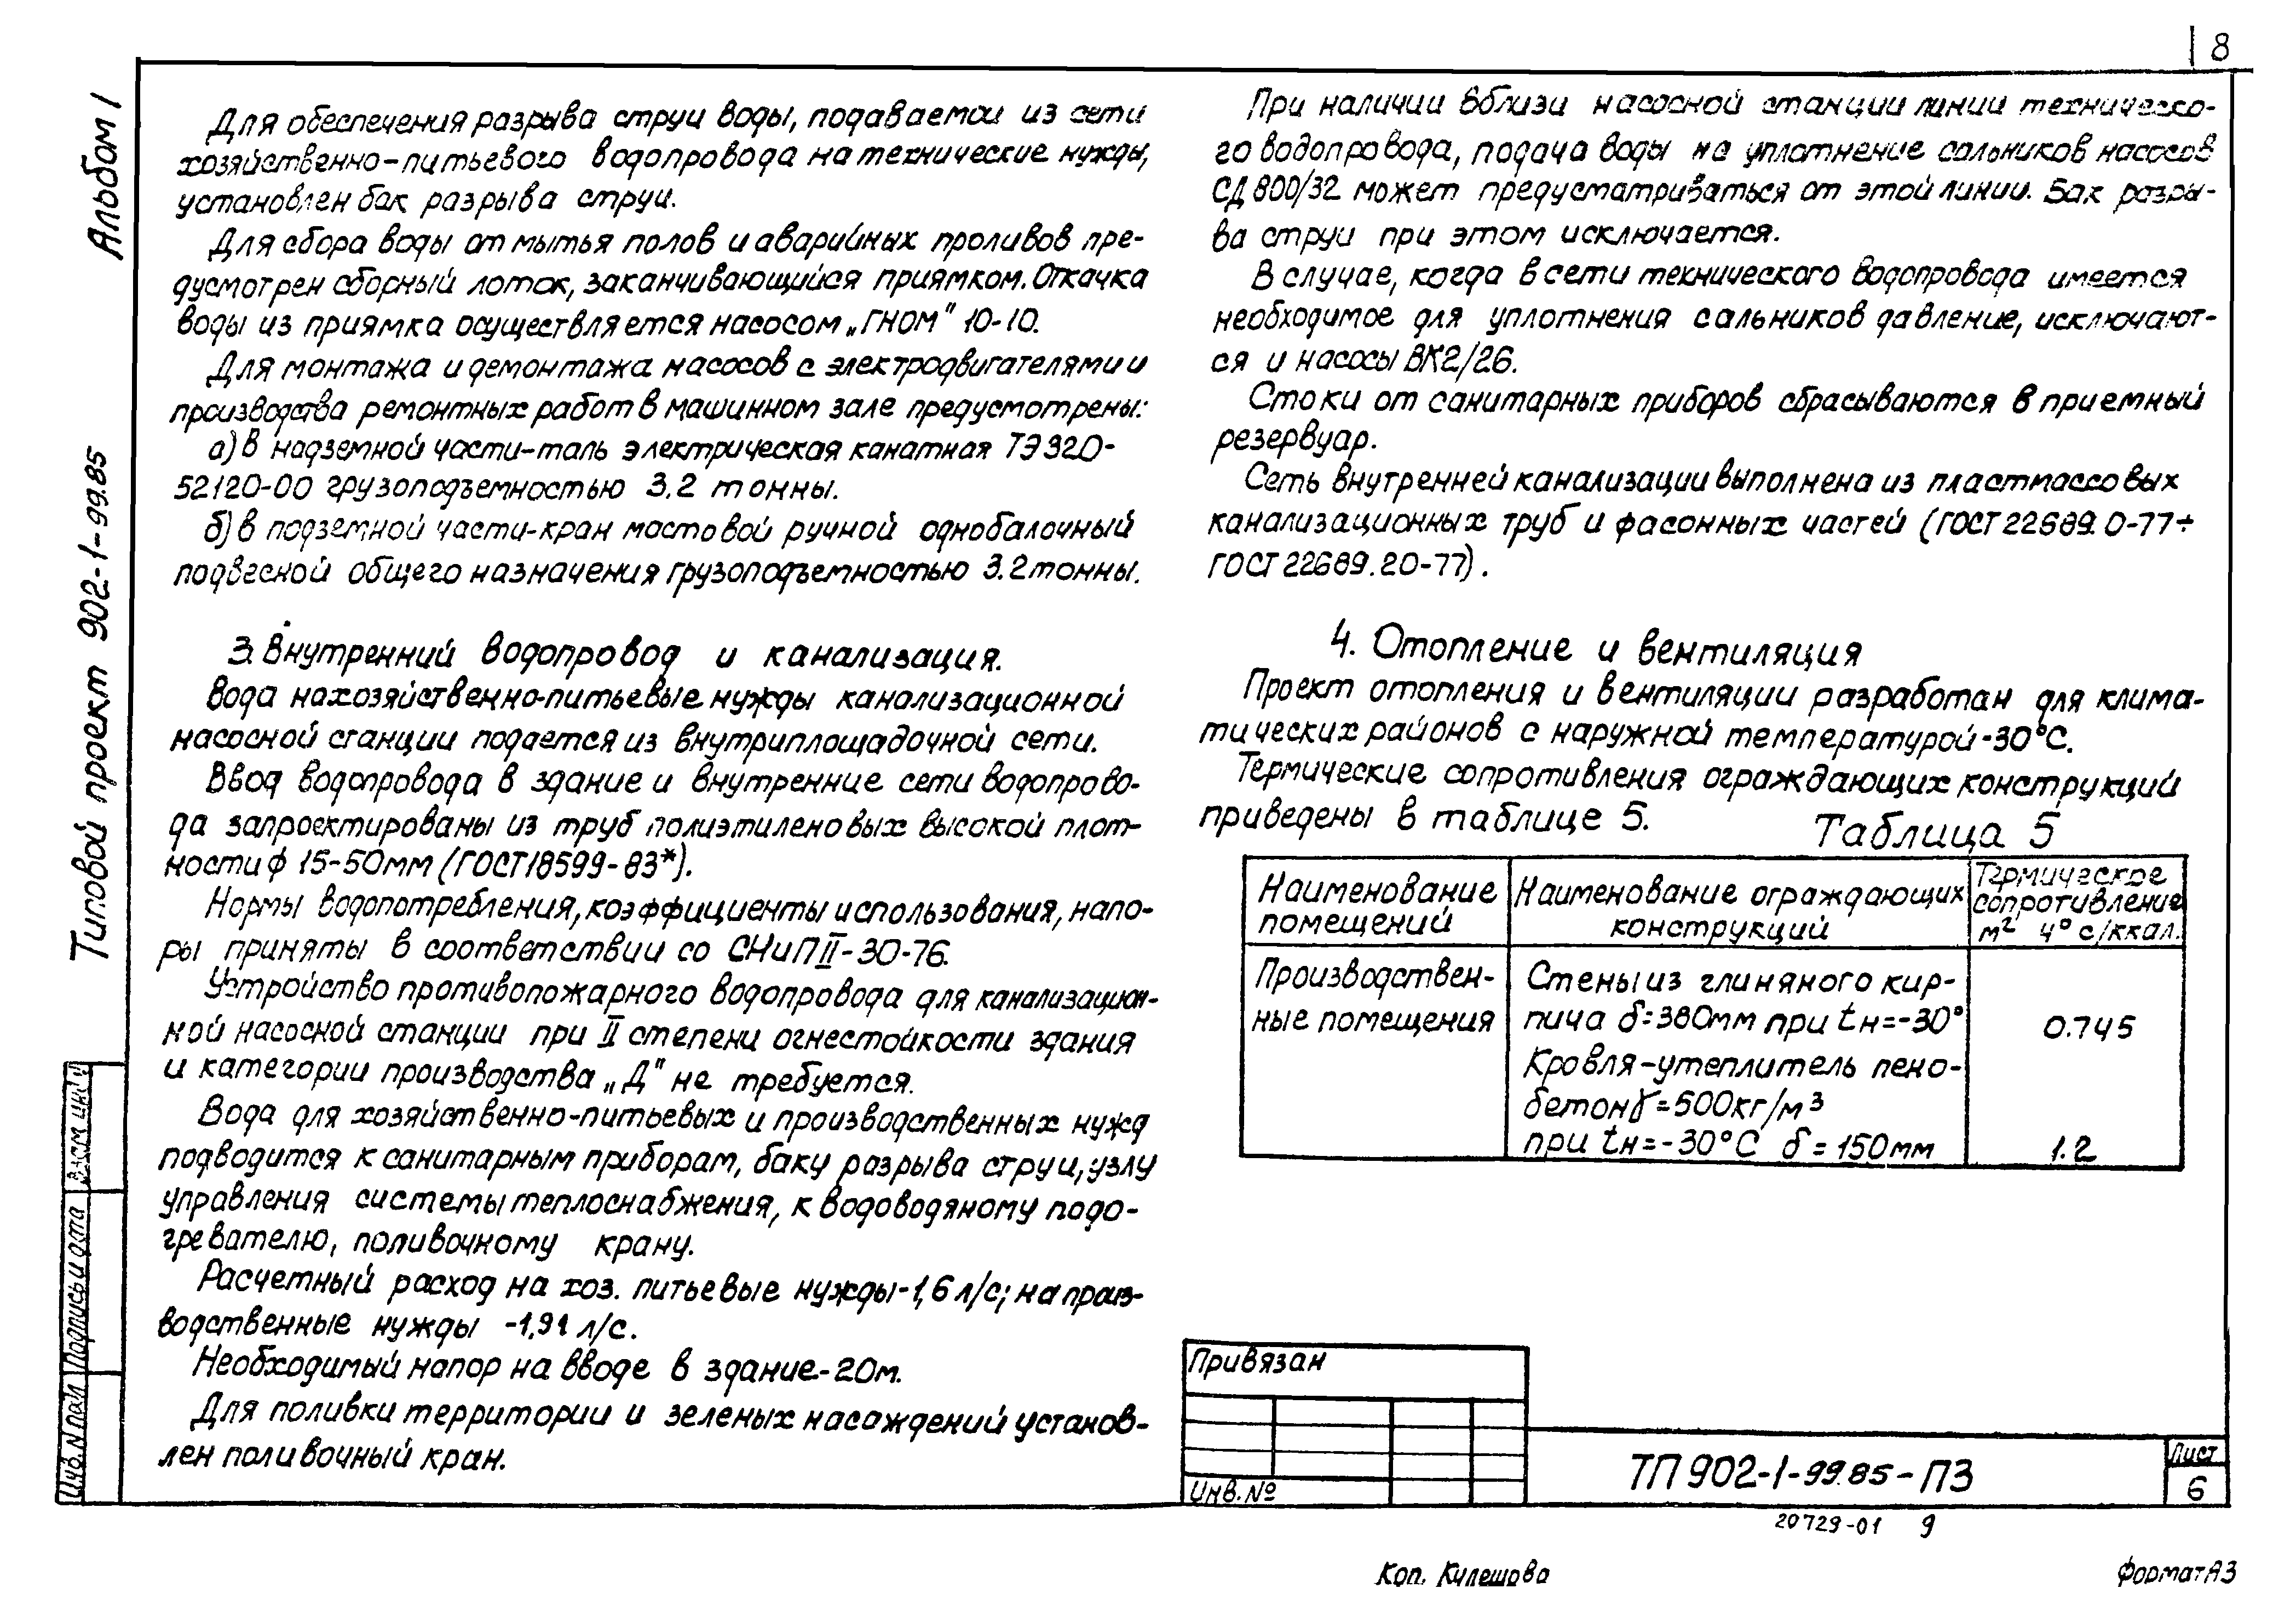 8
Альбом 1
Типовой проект 902-1-99.85
Для обеспечения разрыва струи воды, подаваемой из сети
хозяйственно-питьевого водопровода на технические нужды,
установлен бак разрыва струи.
Для сбора воды от мытья полов и аварийных проливов пре-
дусмотрен сборный лоток, заканчивающийся приямком. Откачка
воды из приямка осуществляется насосом „ГНОМ" 10-10.
Для монтажа и демонтажа насосов с электродвигателями и
производства ремонтных работ в машинном зале предусмотрены:
а) в надземной части-таль электрическая канатная ТЭ320-
52120-00 грузоподъемностью 3.2 тонны.
б) в подземной части-кран мостовой ручной однобалочный
подвесной общего назначения грузоподъемностью 3.2 тонны.
3. Внутренний водопровод и канализация.
Вода на хозяйственно-питьевые нужды канализационной
насосной станции подается из внутриплощадочной сети.
Ввод водопровода в здание и внутренние сети водопрово-
да запроектированы из труб полиэтиленовых высокой плот-
ности ф 15-50мм (ГОСТ18599-83*).
Нормы водопотребления, коэффициенты использования, напо-
ры приняты в соответствии со СНиП II-30-76.
Устройство противопожарного водопровода для канализацион-
ной насосной станции при II степени огнестойкости здания
и категории производства „Д" не требуется.
Вода для хозяйственно-питьевых и производственных нужд
подводится к санитарным приборам, баку разрыва струи, узлу
управления системы теплоснабжения, к водоводяному подо-
гревателю, поливочному крану.
Расчетный расход на хоз. питьевые нужды-1,6 л/с; на произ-
водственные нужды -1,91 л/с.
Необходимый напор на вводе в здание-20м.
Для поливки территории и зеленых насаждений установ-
лен поливочный кран.
При наличии вблизи насосной станции линии техническо-
го водопровода, подача воды на уплотнение сальников насосов
СД 800/32 может предусматриваться от этой линии. Бак разры-
ва струи при этом исключается.
В случае, когда в сети технического водопровода имеется
необходимое для уплотнения сальников давление, исключают-
ся и насосы ВК2/26.
Стоки от санитарных приборов сбрасываются в приемный
резервуар.
Сеть внутренней канализации выполнена из пластмассовых
канализационных труб и фасонных частей (ГОСТ 22689.0-77÷
ГОСТ 22689.20-77).
4. Отопление и вентиляция
Проект отопления и вентиляции разработан для клима-
тических районов с наружной температурой-30°С.
Термические сопротивления ограждающих конструкций
приведены в таблице 5.
Таблица 5
Наименование помещений
Наименование ограждающих конструкций
Термическое сопротивление м² ч° с/ккал.
Производствен-
ные помещения
Стены из глиняного кир-
пича δ=380мм при tн=-30°
0.745
Кровля-утеплитель пено-
бетон γ=500кг/м³
при tн=-30°С δ=150мм
1.2
Привязан
Инв.№
ТП 902-1-99.85-ПЗ
Лист
6
20729-01 9
Коп. Кулешова
Формат А3
Взам инв.
Подпись и дата
Инв.N подл